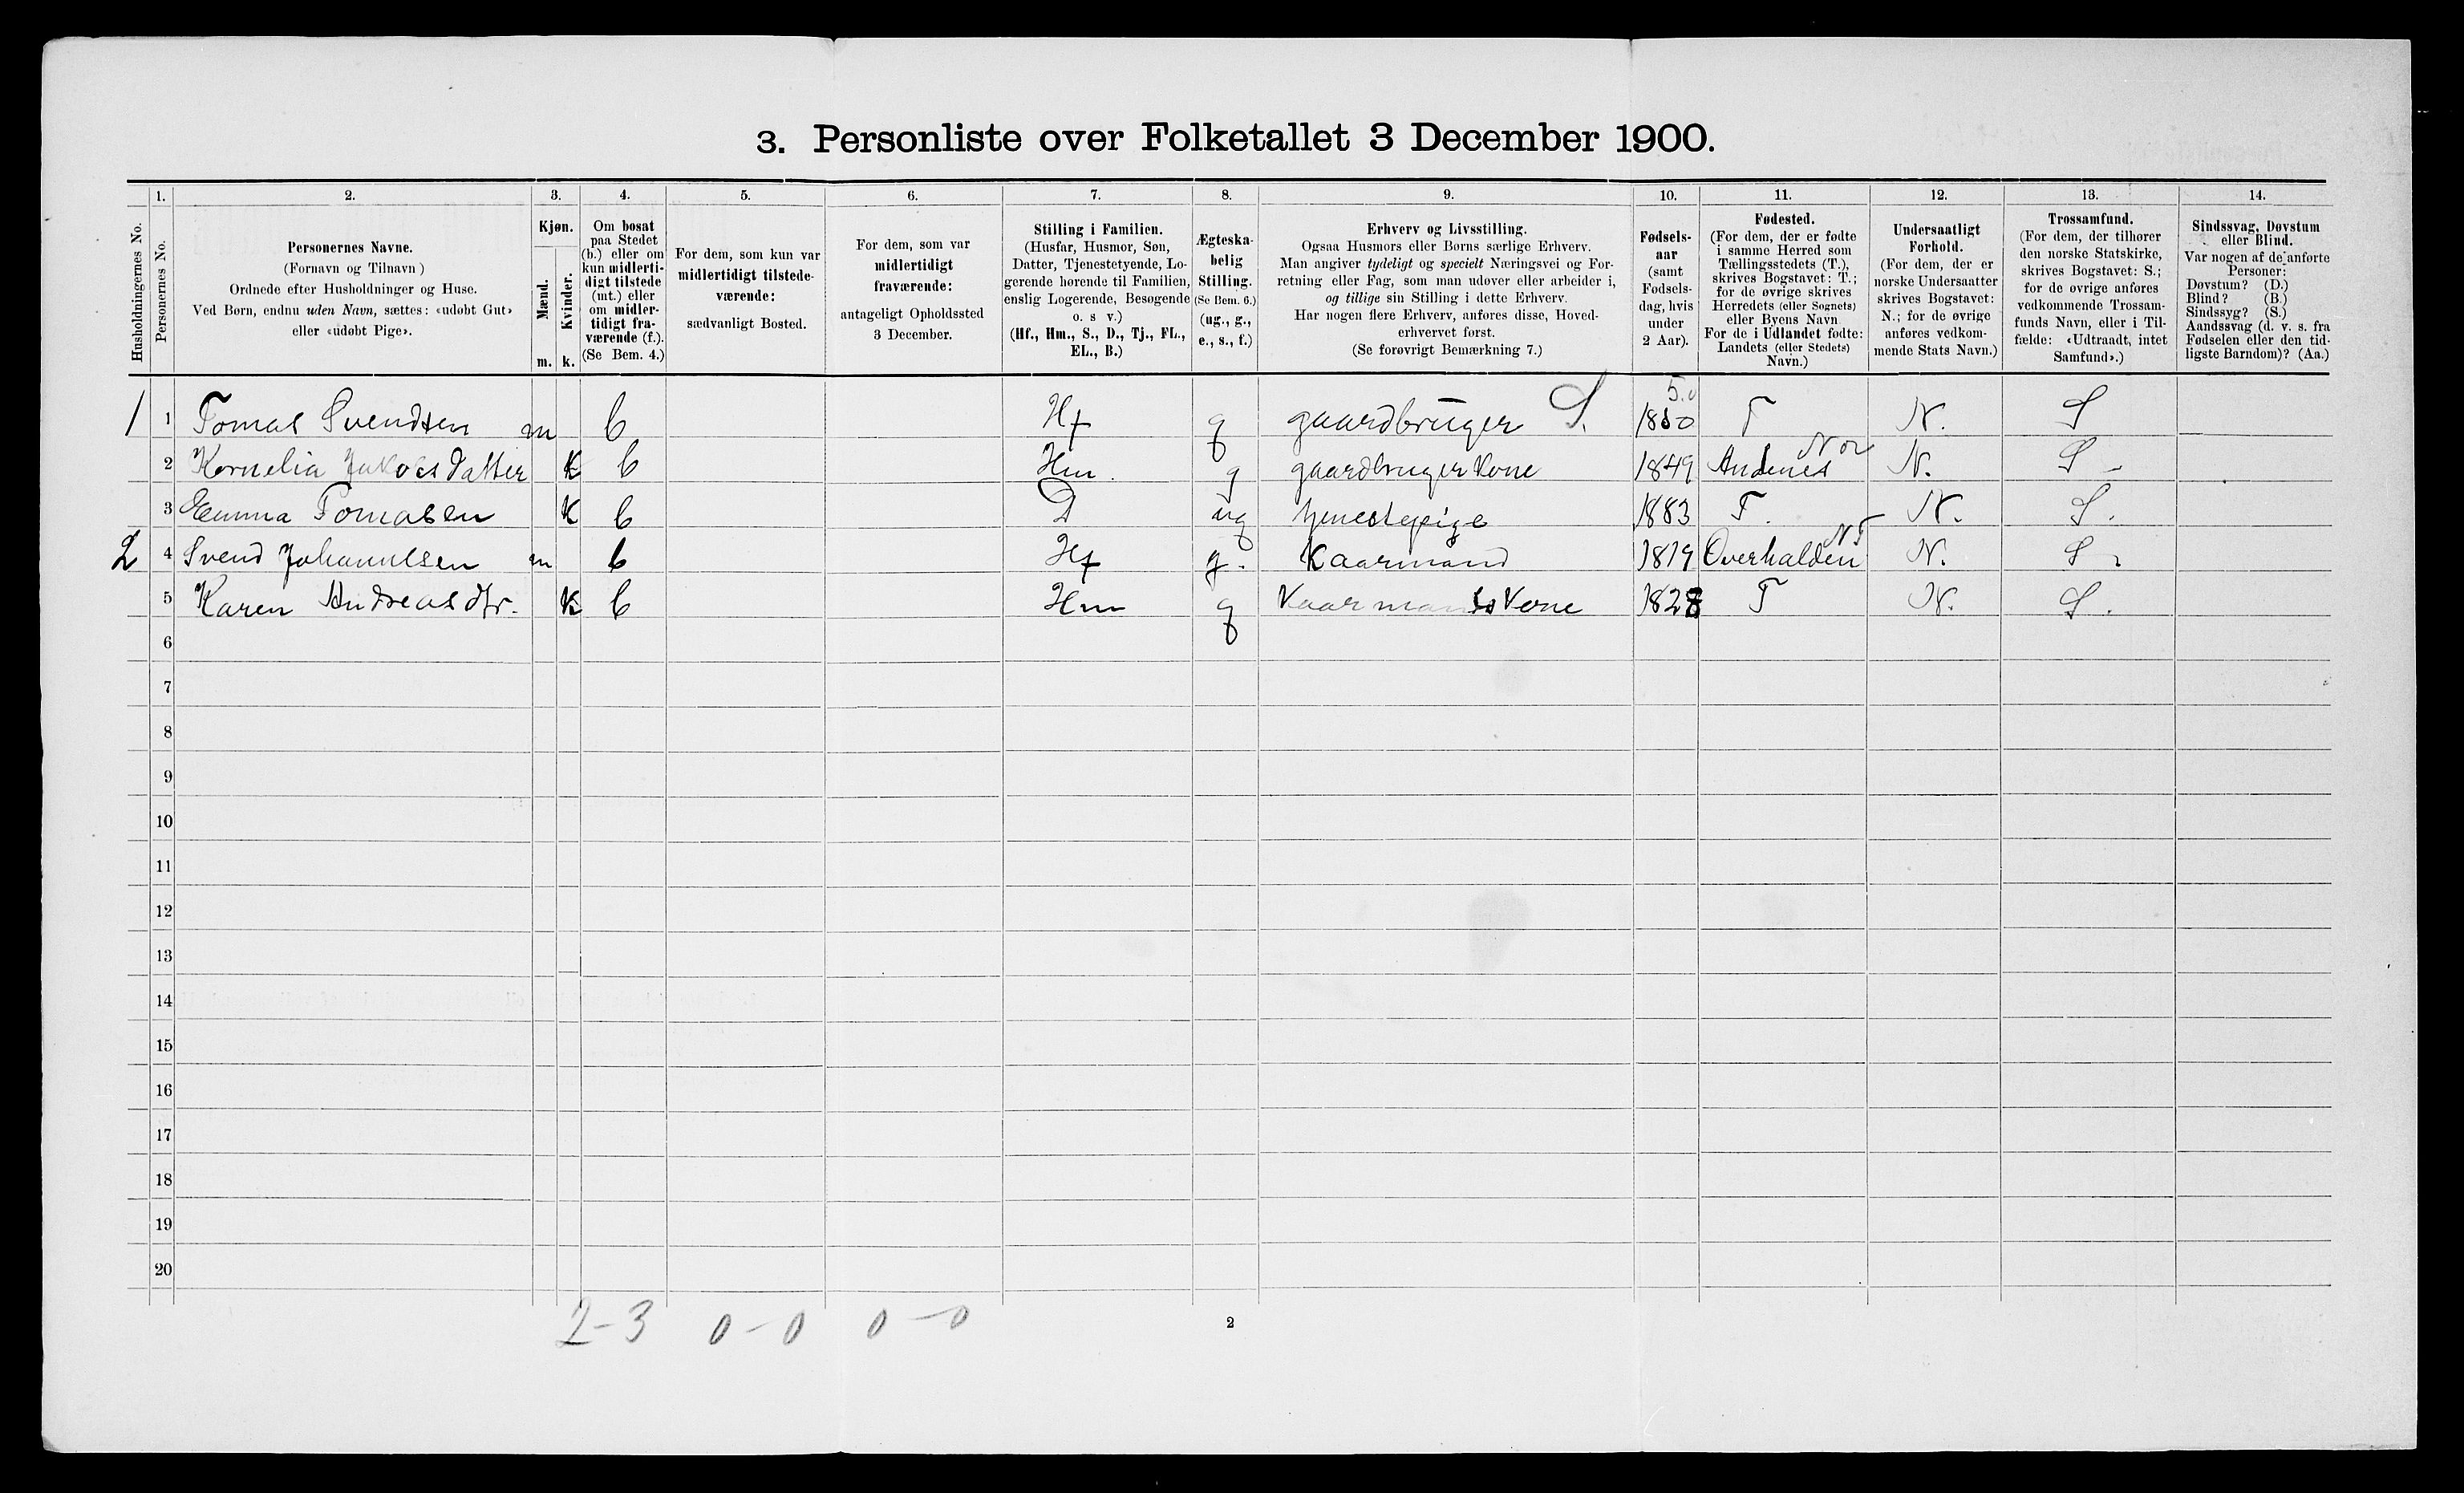 3. Personliste over Folketallet 3 December 1900.
1. 2. 3. 4. 5. 6. 7. 8. 9. 10. 11. 12. 13. 14.
Husholdningernes No.
Personernes No.
Personernes Navne.
(Fornavn og Tilnavn)
Ordnede efter Husholdninger og Huse.
Ved Børn, endnu uden Navn, sættes: «udøbt Gut»
eller «udøbt Pige».
Kjøn.
Mænd.
Kvinder.
m. k.
Om bosat
paa Stedet
(b.) eller om
kun midlerti-
digt tilstede
(mt.) eller
om midler-
tidigt fra-
værende (f.).
(Se Bem. 4.)
For dem, som kun var
midlertidigt tilstede-
værende:
sædvanligt Bosted.
For dem, som var
midlertidigt
fraværende:
antageligt Opholdssted
3 December.
Stilling i Familien.
(Husfar, Husmor, Søn,
Datter, Tjenestetyende, Lo-
gerende hørende til Familien,
enslig Logerende, Besøgende
o. s v.)
(Hf., Hm., S., D., Tj., FL.,
EL., B.)
Ægteska-
belig
Stilling.
(Se Bem. 6.)
(ug., g.,
e., s., f.)
Erhverv og Livsstilling.
Ogsaa Husmors eller Børns særlige Erhverv.
Man angiver tydeligt og specielt Næringsvei og For-
retning eller Fag, som man udøver eller arbeider i,
og tillige sin Stilling i dette Erhverv.
Har nogen flere Erhverv, anføres disse, Hoved-
erhvervet først.
(Se forøvrigt Bemærkning 7.)
Fødsels-
aar
(samt
Fødsels-
dag, hvis
under
2 Aar).
Fødested.
(For dem, der er fødte
i samme Herred som
Tællingsstedets (T.),
skrives Bogstavet: T.;
for de øvrige skrives
Herredets (eller Sognets)
eller Byens Navn
For de i Udlandet fødte:
Landets (eller Stedets)
Navn.)
Undersaatligt
Forhold.
(For dem, der er
norske Undersaatter
skrives Bogstavet:
N.; for de øvrige
anføres vedkom-
mende Stats Navn.)
Trossamfund.
(For dem, der tilhører
den norske Statskirke,
skrives Bogstavet: S.;
for de øvrige anføres
vedkommende Trossam-
funds Navn, eller i Til-
fælde: «Udtraadt, intet
Samfund».)
Sindssvag, Døvstum
eller Blind.
Var nogen af de anførte
Personer:
Døvstum? (D.)
Blind? (B.)
Sindssyg? (S.)
Aandssvag (d. v. s. fra
Fødselen eller den tid-
ligste Barndom)? (Aa.)
1 1 Tomas Svendsen m b Hf g gaardbruger S. 1850 50 T N. S
2 Kornelia Jakobsdatter K b Hm. g gaardbruger kone 1849 Andenes Nor N. S
3 Emma Tomasen K b D ug tjenestepige 1883 T. N. S.
2 4 Svend Johannesen m b Hf g. Kaarmand 1819 Overhalden NT N. S
5 Karen Andreasdtr. K b Hm g Kaarmands Kone 1828 T N. S.
6
7
8
9
10
11
12
13
14
15
16
17
18
19
20
2-3 0-0 0-0
2